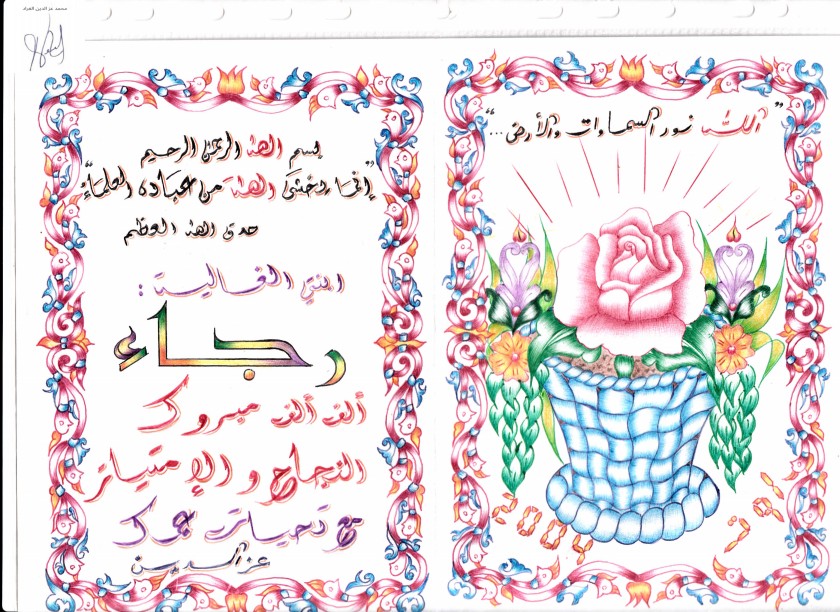 محمد عز الدين القراد
"الله نور السماوات والأرض..."
بسم الله الرحمن الرحيم
"إنما يخشى الله من عباده العلماء"
صدق الله العظيم
الغالية:
رجاء
ألف ألف مبروك
النجاح و الإمتياز
مع تحيات عمك
عز الدين
2009